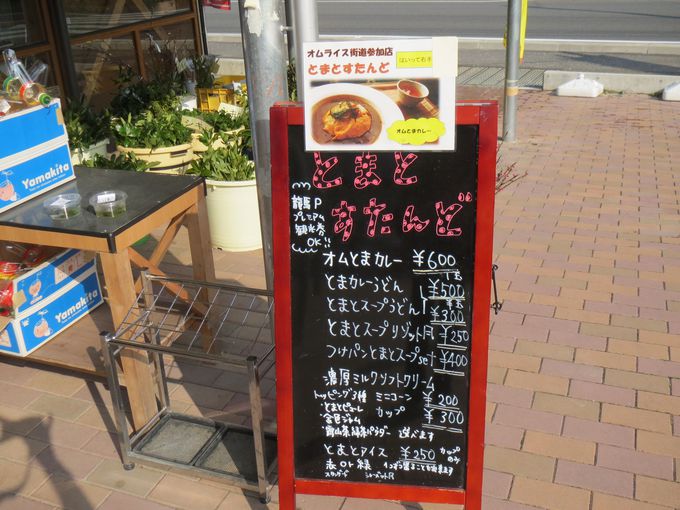 オムライス街道参加店
はいって右手
とまとすたんど
オムとまカレー
とまと
すたんど
龍馬P
プレミアム
観光券
OK!!
オムとまカレー ¥600
とまカレーうどん ¥500
とまとスープうどん ¥300
とまとスープリゾット ¥250
つけパンとまとスープset ¥400
濃厚ミルクソフトクリーム
トッピング3種 ミニコーン ¥200
・とまとピューレ カップ ¥300
選べます
とまとアイス ¥250 カップのみ
赤or緑
Yamakita
Yamakita